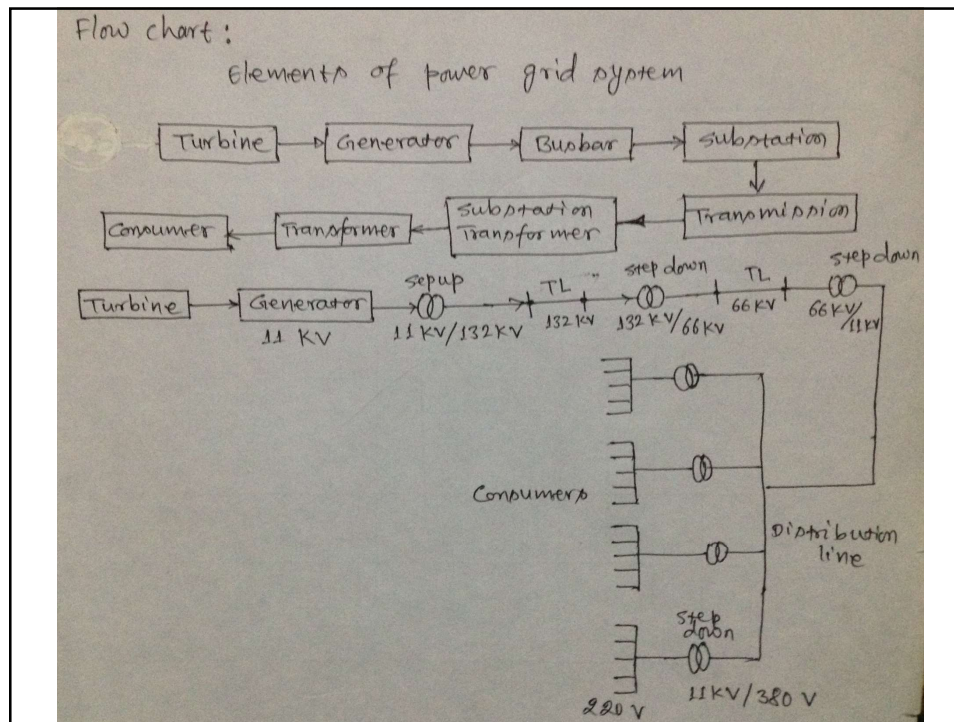 Flow chart:
Elements of power grid system
Turbine
Generator
Busbar
Substation
Consumer
Transformer
Substation
Transformer
Transmission
Turbine
Generator
11 KV
sepup
11 KV/132KV
TL
132 KV
step down
132 KV/66KV
TL
66 KV
step down
66 KV/11KV
Consumers
Distribution
line
step
down
220 V
11KV/380 V